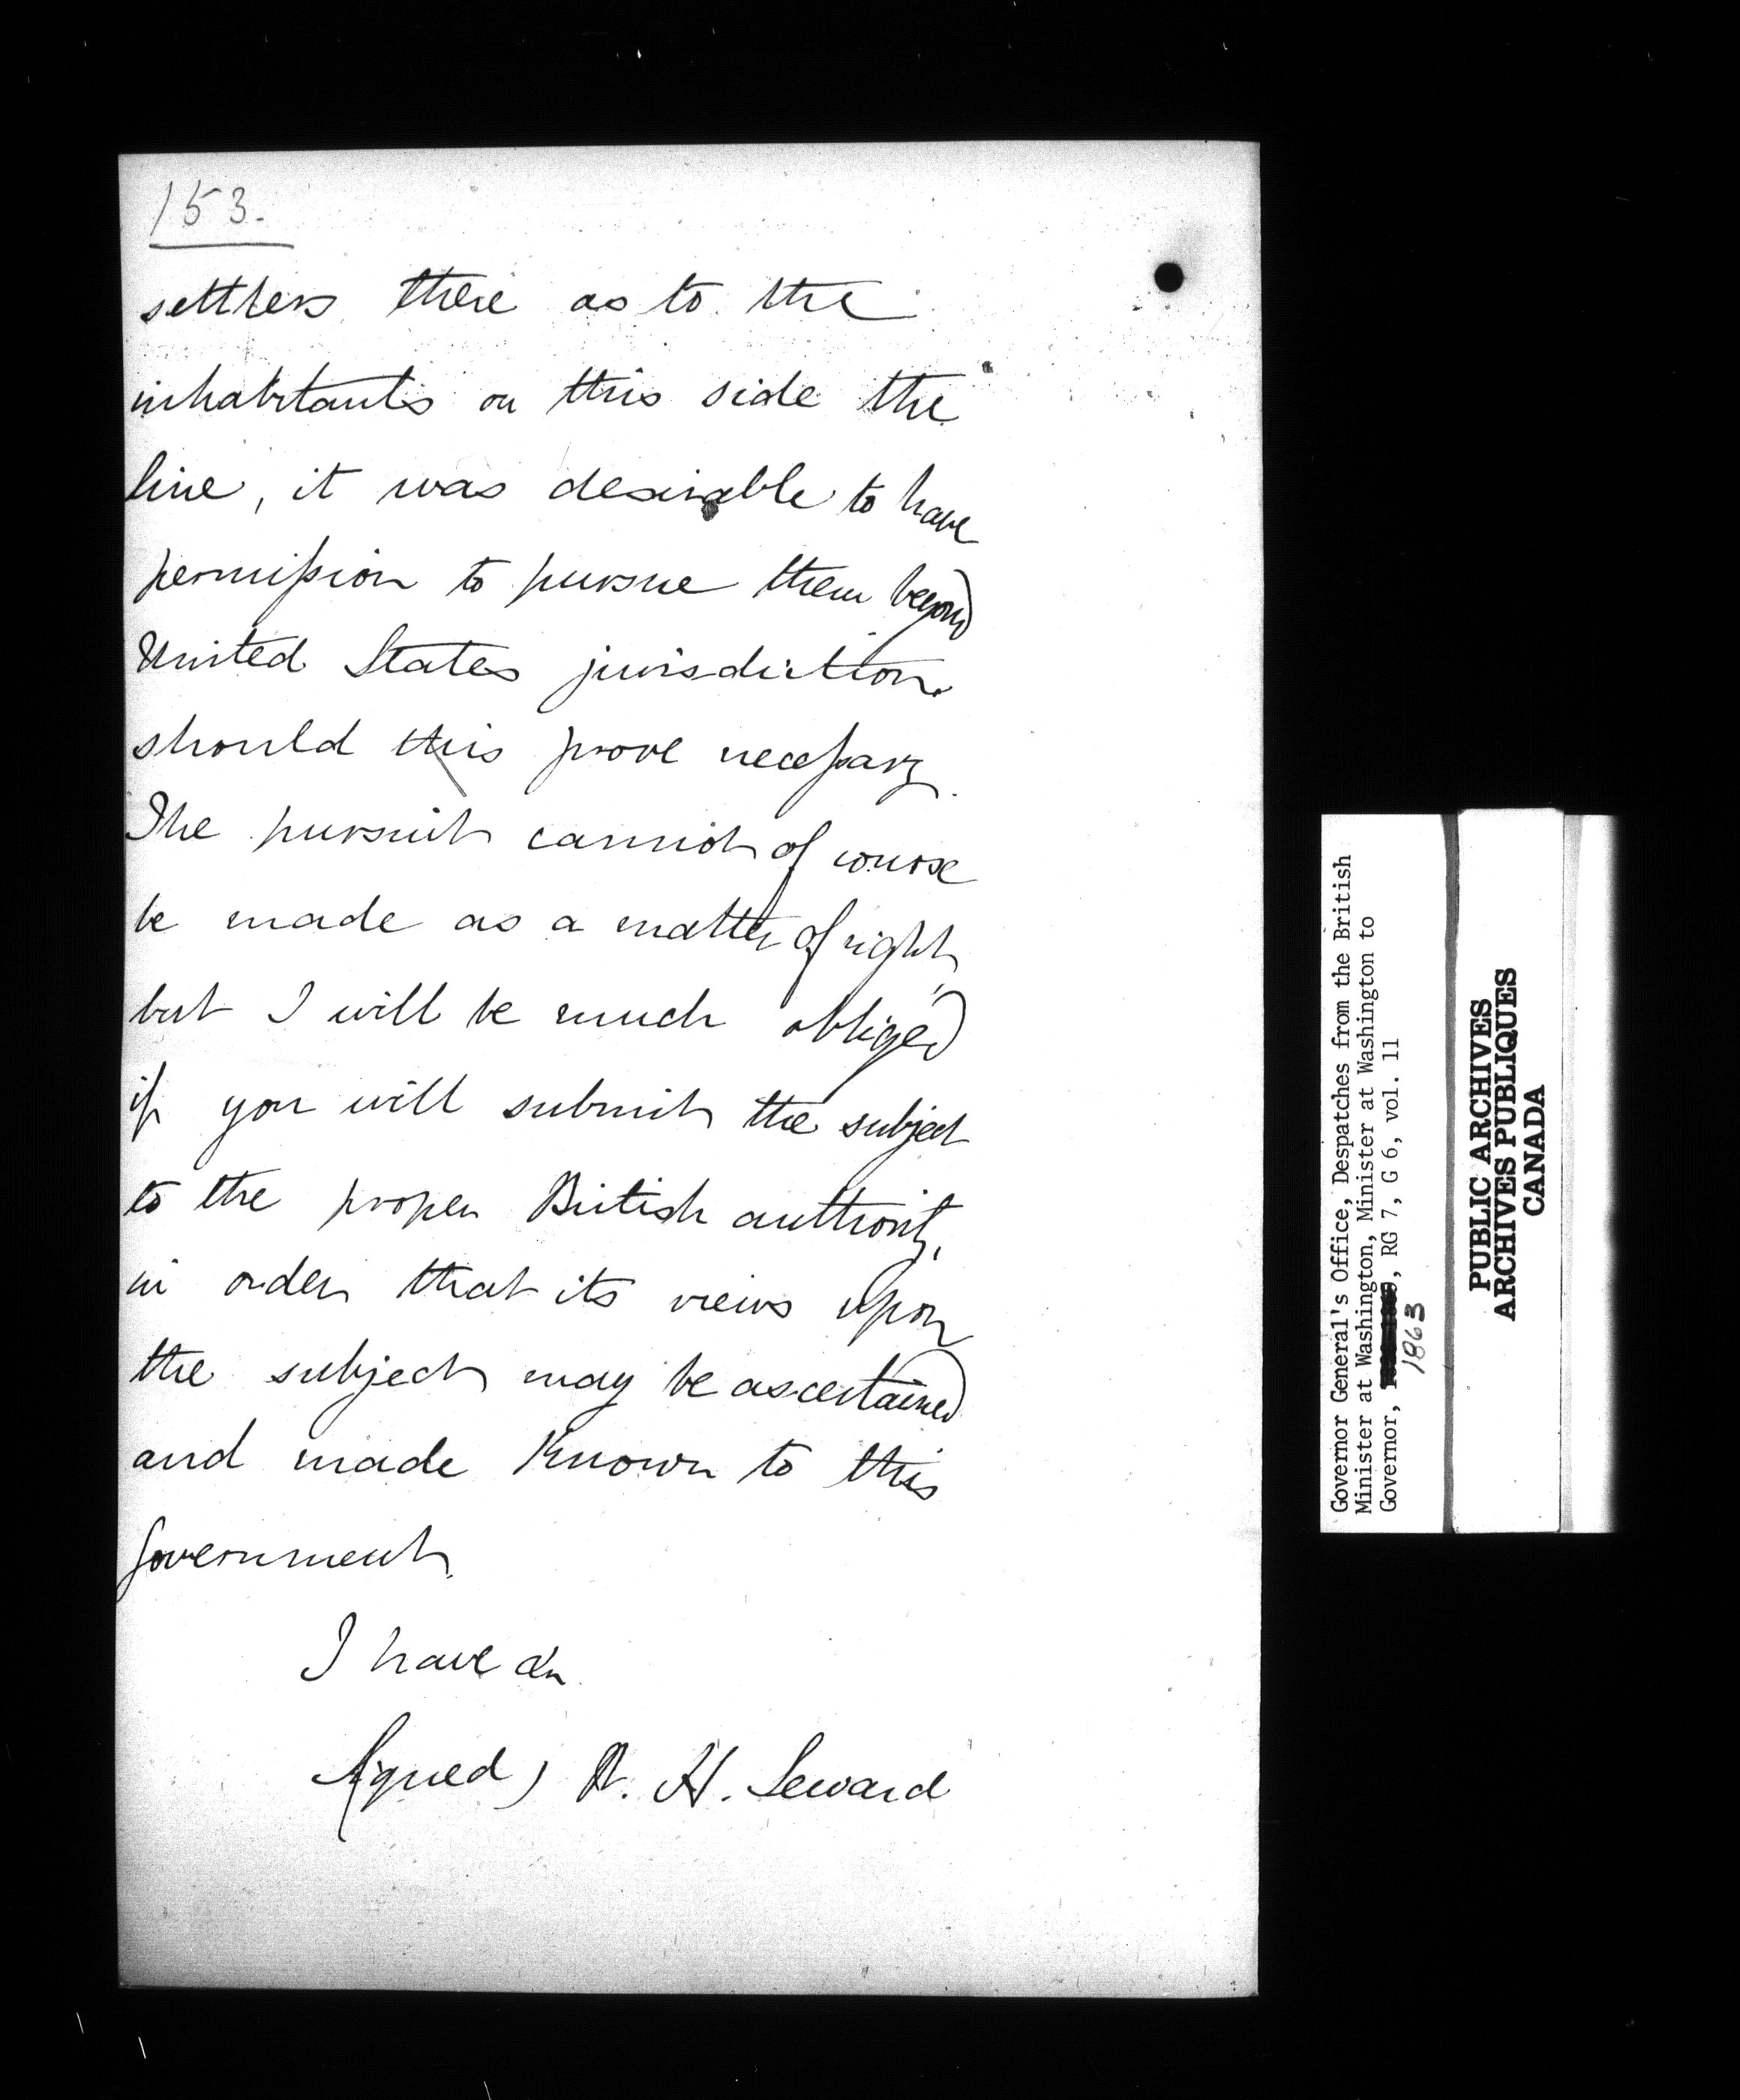 153.
settlers there as to the
inhabitants on this side the
line, it was desirable to have
permission to pursue them beyond
United States jurisdiction
should this prove necessary.
The pursuit cannot of course
be made as a matter of right,
but I will be much obliged
if you will submit the subject
to the proper British authority,
in order that its views upon
the subject may be ascertained
and made Known to this
Government.
I have &c
Signed) W. H. Seward
Governor General's Office, Despatches from the British
Minister at Washington, Minister at Washington to
Governor, , RG 7, G 6, vol. 11
1863
PUBLIC ARCHIVES
ARCHIVES PUBLIQUES
CANADA